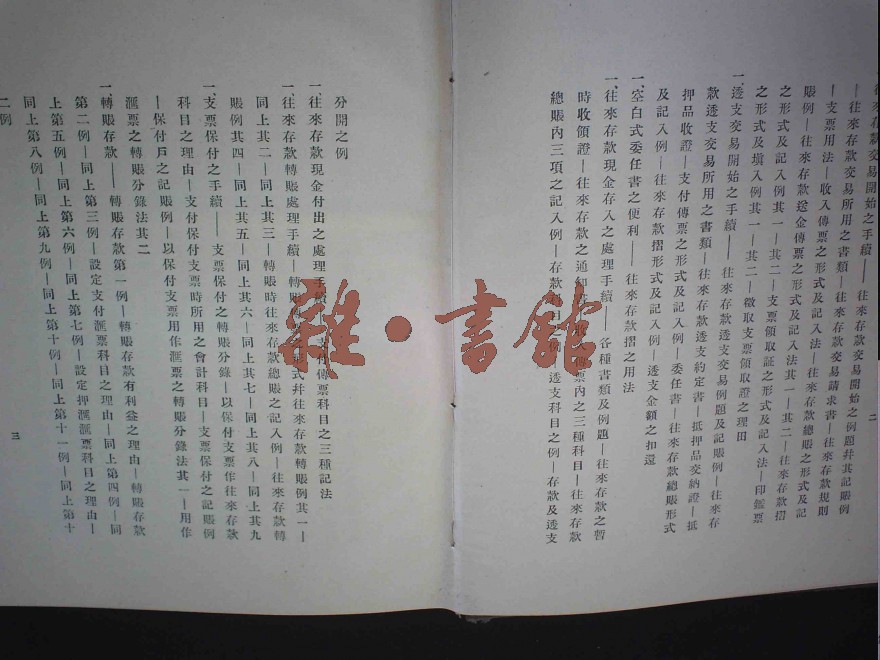 往來存款交易開始之手續——往來存款交易開始之例題幷其記賬例
—往來存款交易所用之書類—往來存款交易請求書—往來存款規則
—支票用法—收入傳票之形式及記入法—往來存款總賬之形式及記
賬例—往來存款送金傳票之形式及記入法其一—其二—往來存款摺
之形式及記入例其一—其二—支票領取証之形式及記入法—印鑑票
之形式及塡入例其一—其二—徵取支票領取證之理由
一、透支交易開始之手續——往來存款透支交易例題及記賬例—往來存
款透支交易所用之書類—往來存款透支約定書—抵押品交納證—抵
押品收證—支付傳票之形式及記入例—委任書—往來存款總賬形式
及記入例—往來存款摺形式及記入例—透支金額之扣還
一、空白式委任書之便利——往來存款摺之用法
一、往來存款現金存入之處理手續——各種書類及例題—往來存款之暫
時收領證—往來存款之通知書—收入傳票內之三種科目—往來存款
總賬內三項之記入例—存款科目之例—透支科目之例—存款及透支
二
分開之例
一、往來存款現金付出之處理手續—支付傳票科目之三種記法
一、往來存款轉賬處理手續—轉賬傳票之形式幷往來存款轉賬例其一—
同上其二—同上其三—轉賬時往來存款總賬之記入例—往來存款轉
賬例其四—同上其五—同上其六—同上其七—同上其八—同上其九
一、支票保付之手續——支票保付之轉賬分錄—以保付支票作往來存款
科目之理由—支付保付支票時所用之會計科目—支票保付之記賬例
—保付戶之記賬例—以保付支票用作滙票之轉賬分錄法其一—用作
滙票之轉賬分錄法其二
一、轉賬存款——轉賬存款第一例—轉賬存款有利益之理由—轉賬存款
第二例—同上第三例—設定支付滙票科目之理由—同上第四例—同
上第五例—同上第六例—同上第七例—設定押滙滙票科目之理由—
同上第八例—同上第九例—同上第十例—同上第十一例—同上第十
二例
三
雜·書館